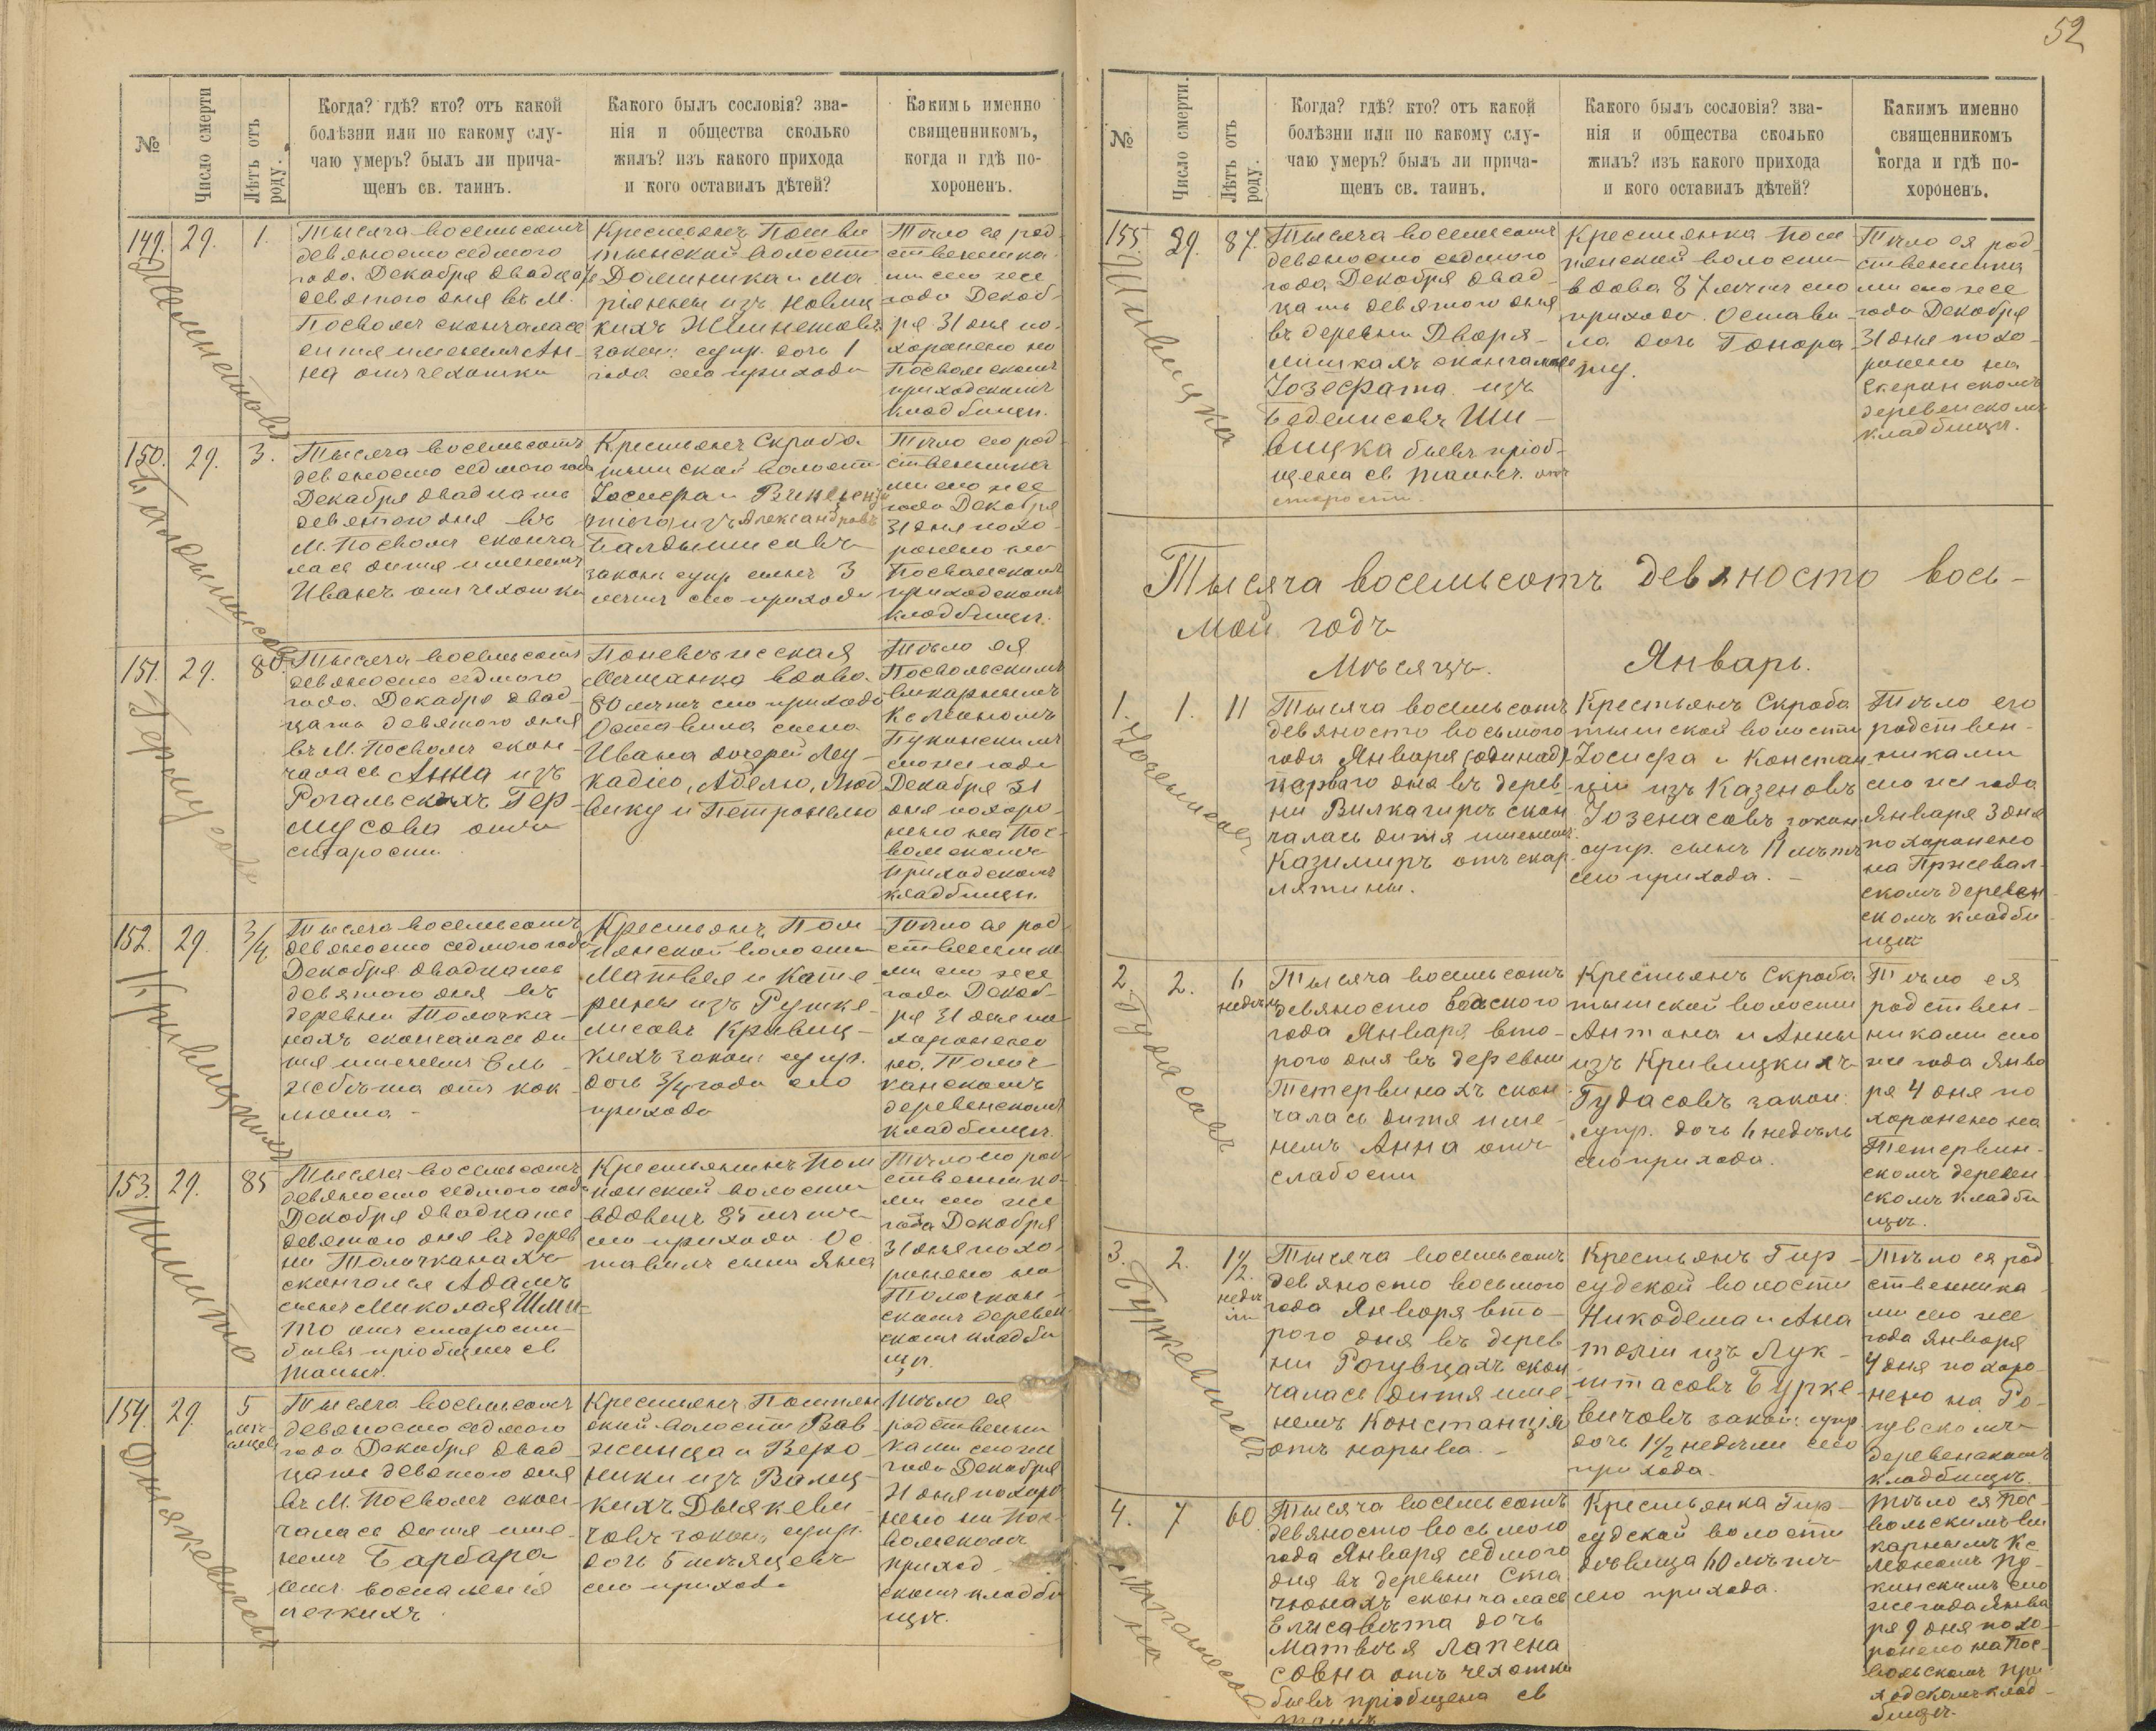 52
№
Число смерти
Лѣтъ отъ роду.
Когда? гдѣ? кто? отъ какой
болѣзни или по какому слу-
чаю умеръ? былъ ли прича-
щенъ св. таинъ.
Какого былъ сословія? зва-
нія и общества сколько
жилъ? изъ какого прихода
и кого оставилъ дѣтей?
Какимъ именно
священникомъ,
когда и гдѣ по-
хороненъ.
149.
29.
1.
Тысяча восемьсотъ
девяносто седмого
года Декабря двадцать
девятого дня въ М.
Посволѣ скончалась
дитя именемъ Ан-
на отъ чехотки
Крестьянъ
волости
Доминика и Ма
ріянны изъ
кихъ
закон. супр. дочь 1
года сего прихода
Тѣло ея род-
ственника-
ми сего же
года Декаб-
ря 31 дня по-
хоронено на
Посвольскомъ
приходскомъ
кладбищѣ.
150.
29.
3.
Тысяча восемьсотъ
девяносто седмого года
Декабря двадцать
девятого дня въ
М. Посволѣ сконча
лась дитя именемъ
Иванъ отъ чехотки
Крестьянъ Скроба
тышской волости
Іосифа и Винценты
изъ Александровъ
Балдышисовъ
закон. супр. сынъ 3
лѣтъ сего прихода
Тѣло его род-
ственника
ми сего же
года Декабря
31 дня похо-
ронено на
Посвольскомъ
приходскомъ
кладбищѣ.
151.
29.
80.
Тысяча восемьсотъ
девяносто седмого
года Декабря двад-
цать девятого дня
въ М. Посволѣ скон-
чалась Анна изъ
Рогальскихъ Гер-
мусова отъ
старости
Поневѣжская
Мещанка вдова
80 лѣтъ сего прихода
Оставила сына
Ивана дочерей Леу-
кадію, Аделю, Люд
вику и Петронелю
Тѣло ея
Посвольскимъ
викарнымъ
Кс Леономъ
сего же года
Декабря 31
дня похоро-
нено на Пос-
вольскомъ
приходскомъ
кладбищѣ.
152.
29.
3/4
Тысяча восемьсотъ
девяносто седмого года
Декабря двадцать
девятого дня въ
деревни Толочка-
нахъ скончалась ди
тя именемъ Ель-
жбѣта отъ кок-
люша -
Крестьянъ Пом
пянской волости
Матвея и Кате-
рины изъ
лисовъ Кривиц-
кихъ закон. супр.
дочь 3/4 года сего
прихода
Тѣло ея род-
ственника
ми сего же
года Декаб-
ря 31 дня по-
хоронено
на Толоч-
канскомъ
деревенскомъ
кладбищѣ.
Кривицкихъ
153.
29.
85
Тысяча восемьсотъ
девяносто седмого года
Декабря двадцать
девятого дня въ дерев
ни Толочканахъ
скончался Адамъ
сынъ Миколая Шми-
то отъ старости
бывъ пріобщенъ св
таинъ.
Крестьянинъ Пом
пянской волости
вдовецъ 85 лѣтъ
сего прихода Ос
тавилъ сына Яна
Тѣло его род-
ственника-
ми сего же
года Декабря
31 дня похо-
ронено на
Толочкан-
скомъ деревен-
скомъ кладби
щѣ.
154.
29
5
мѣс-
яцевъ
Тысяча восемьсотъ
девяносто седмого
года Декабря двад-
цать девятого дня
въ М. Посволѣ скон-
чалась дитя име-
немъ Барбара
отъ воспаленія
легкихъ
Крестьянъ
ской волости Вав-
жинца и Веро-
ники изъ Валиц-
кихъ Дынкеви-
човъ закон. супр.
дочь 5 мѣсяцевъ
сего прихода
Тѣло ея
родственни
ками сего же
года Декабря
31 дня похоро
нено на Пос-
вольскомъ
приход-
скомъ кладби
щѣ.
№
Число смерти.
Лѣтъ отъ роду.
Когда? гдѣ? кто? отъ какой
болѣзни или по какому слу-
чаю умеръ? былъ ли прича-
щенъ св. таинъ.
Какого былъ сословія? зва-
нія и общества сколько
жилъ? изъ какого прихода
и кого оставилъ дѣтей?
Какимъ именно
священникомъ
когда и гдѣ по-
хороненъ.
155
29.
87.
Тысяча восемьсотъ
девяносто седмого
года Декабря двад-
цать девятого дня
въ деревни Дворя-
нишкахъ скончалась
Іозефата изъ
Беделисовъ Ши-
вицка бывъ пріоб-
щена св таинъ. отъ
старости.
Крестьянка Пом
пянской волости
вдова 87 лѣтъ сего
прихода. Остави-
ла дочь Гонора-
ту.
Тѣло ея род-
ственника
ми сего же
года Декабря
31 дня похо-
ронено на
деревенскомъ
кладбищѣ.
Шивицка
Тысяча восемьсотъ девяносто вось-
мой годъ
Мѣсяцъ. Январь.
1.
1.
11
Тысяча восемьсотъ
девяносто восьмого
года Января (одинад)
перваго дня въ дерев
ни Вилкагирѣ скон
чалась дитя именемъ
Казимиръ отъ скар-
лятины.
Крестьянъ Скроба
тышской волости
Іосифа и Констан
ціи изъ Казеновъ
Іозенасовъ закон
супр. сынъ 11 лѣтъ
сего прихода. -
Тѣло его
родствен-
никами
сего же года
Января 3 дня
похоронено
на Пржевал-
скомъ деревен-
скомъ кладби
щѣ
2.
2.
6
недѣль
Тысяча восемьсотъ
девяносто
года Января вто-
рого дня въ деревни
Тетервинахъ скон
чалась дитя име-
немъ Анна отъ
слабости
Крестьянъ Скроба
тышской волости
Антона и Анны
изъ Кривицкихъ
Гудасовъ закон.
супр. дочь 6 недѣль
сего прихода.
Тѣло ея
родствен-
никами сего
же года Янва
ря 4 дня по
хоронено на
Тетервин-
скомъ деревен-
скомъ кладби
щѣ.
Гудасовъ
3.
2.
1 1/2
недѣ
ли
Тысяча восемьсотъ
девяносто восьмого
года Января вто-
рого дня въ дерев
ни Рогувцахъ скон
чалась дитя име-
немъ Констанція
отъ нарыва. -
Крестьянъ Гир-
судской волости
Никодема и Ана
толіи изъ Лук-
штасовъ Бурке-
вичовъ закон. супр
дочь 1 1/2 недѣли сего
прихода.
Тѣло ея род
ственника-
ми сего же
года Января
4 дня похоро-
нено на Ро-
гувскомъ
деревенскомъ
кладбищѣ.
Буркевичовъ
4.
7
60
Тысяча восемьсотъ
девяносто восьмого
года Января седмого
дня въ деревни Ски
чюнахъ скончалась
Елисавѣта дочь
Матвѣя Лапена
совна отъ чехотки
бывъ пріобщена св
таинъ
Крестьянка Гир-
судской волости
дѣвица 60 лѣтъ
сего прихода.
Тѣло ея Пос-
вольскимъ ви
карнымъ Кс
Леономъ Пу-
кинскимъ сего
же года Янва
ря 9 дня похо-
ронено на Пос-
вольскомъ при
ходскомъ клад-
бищѣ.